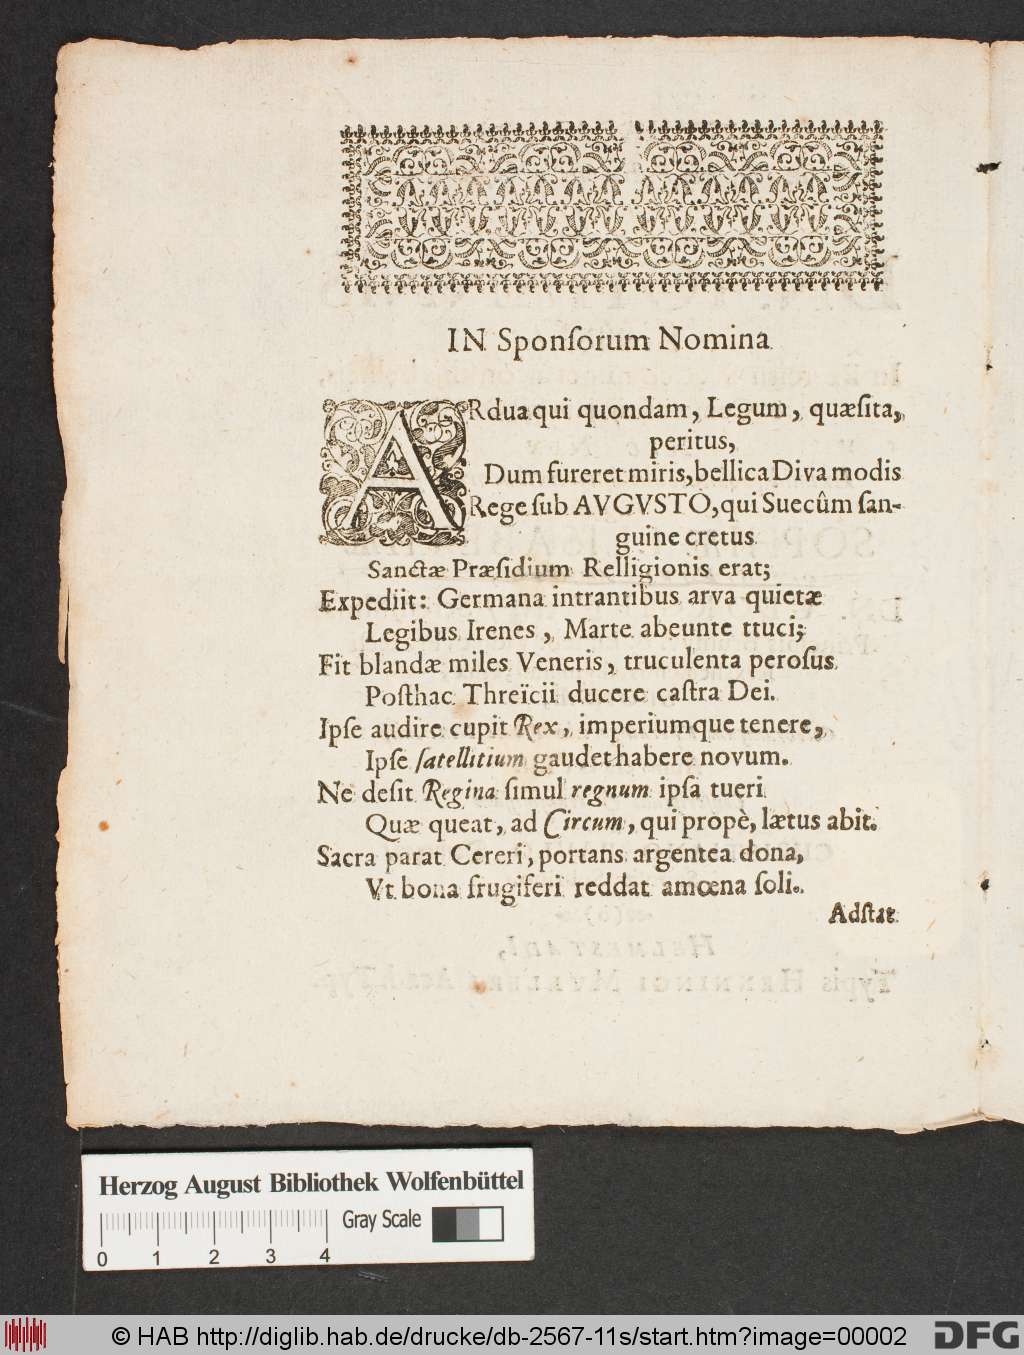 IN Sponſorum Nomina
ARdua qui quondam, Legum, quæſita,
peritus,
Dum fureret miris, bellica Diva modis
Rege ſub AVGVSTO, qui Suecûm ſan-
guine cretus
Sanctæ Præſidium Relligionis erat;
Expediit: Germana intrantibus arva quietæ
Legibus Irenes, Marte abeunte ttuci;
Fit blandæ miles Veneris, truculenta peroſus
Poſthac Threïcii ducere caſtra Dei.
Ipſe audire cupit Rex, imperiumque tenere,
Ipſe ſatellitium gaudet habere novum.
Ne deſit Regina ſimul regnum ipſa tueri
Quæ queat, ad Circum, qui propè, lætus abit.
Sacra parat Cereri, portans argentea dona,
Vt bona frugiferi reddat amœna ſoli.
Adſtat
Herzog August Bibliothek Wolfenbüttel
Gray Scale
0 1 2 3 4
© HAB http://diglib.hab.de/drucke/db-2567-11s/start.htm?image=00002
DFG